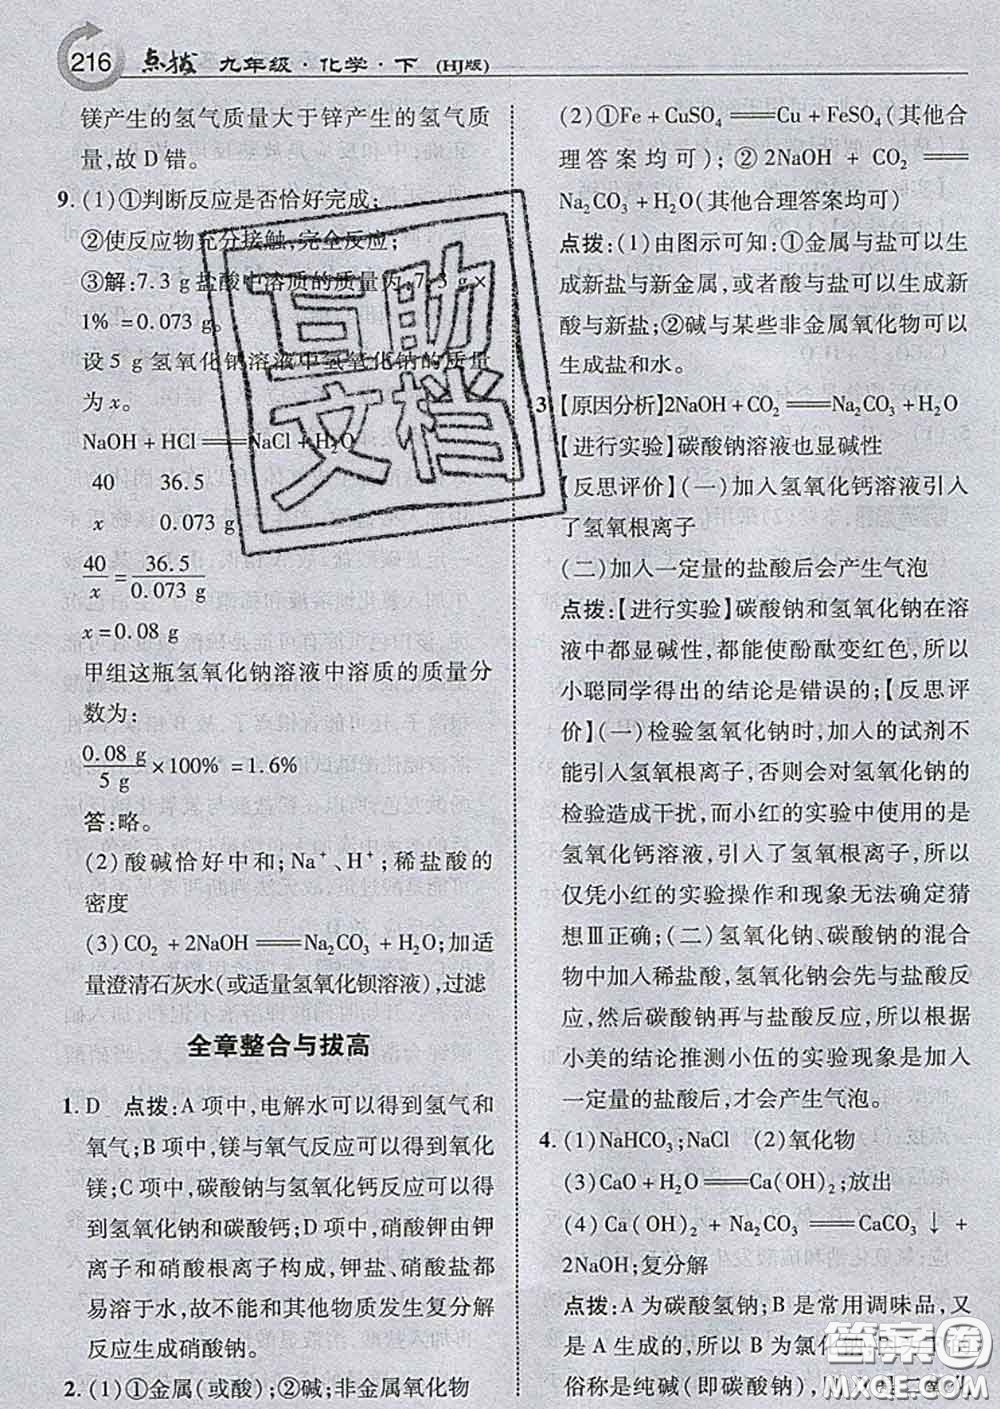 216 点拨 九年级·化学·下 (HJ版)
镁产生的氢气质量大于锌产生的氢气质
量,故 D 错。
9. (1)①判断反应是否恰好完成;
②使反应物充分接触,完全反应;
③解:7.3 g 盐酸中溶质的质量为:7.3 g×
1% =0.073 g。
设 5 g 氢氧化钠溶液中氢氧化钠的质量
为 x。
NaOH + HCl══NaCl + H₂O
40 36.5
x 0.073 g
40/x = 36.5/0.073 g
x=0.08 g
甲组这瓶氢氧化钠溶液中溶质的质量分
数为:
0.08 g/5 g ×100% =1.6%
答:略。
(2)酸碱恰好中和;Na⁺、H⁺;稀盐酸的
密度
(3)CO₂ +2NaOH══Na₂CO₃ +H₂O;加适
量澄清石灰水(或适量氢氧化钡溶液),过滤
全章整合与拔高
1. D 点拨:A 项中,电解水可以得到氢气和
氧气;B 项中,镁与氧气反应可以得到氧化
镁;C 项中,碳酸钠与氢氧化钙反应可以得
到氢氧化钠和碳酸钙;D 项中,硝酸钾由钾
离子和硝酸根离子构成,钾盐、硝酸盐都
易溶于水,故不能和其他物质发生复分解
反应生成硝酸钠。
2. (1)①金属(或酸);②碱;非金属氧化物
(2)①Fe + CuSO₄══Cu + FeSO₄(其他合
理答案均可);②2NaOH + CO₂══
Na₂CO₃ +H₂O(其他合理答案均可)
点拨:(1)由图示可知:①金属与盐可以生
成新盐与新金属,或者酸与盐可以生成新
酸与新盐;②碱与某些非金属氧化物可以
生成盐和水。
3.【原因分析】2NaOH+CO₂══Na₂CO₃+H₂O
【进行实验】碳酸钠溶液也显碱性
【反思评价】(一)加入氢氧化钙溶液引入
了氢氧根离子
(二)加入一定量的盐酸后会产生气泡
点拨:【进行实验】碳酸钠和氢氧化钠在溶
液中都显碱性,都能使酚酞变红色,所以
小聪同学得出的结论是错误的;【反思评
价】(一)检验氢氧化钠时,加入的试剂不
能引入氢氧根离子,否则会对氢氧化钠的
检验造成干扰,而小红的实验中使用的是
氢氧化钙溶液,引入了氢氧根离子,所以
仅凭小红的实验操作和现象无法确定猜
想Ⅲ正确;(二)氢氧化钠、碳酸钠的混合
物中加入稀盐酸,氢氧化钠会先与盐酸反
应,然后碳酸钠再与盐酸反应,所以根据
小美的结论推测小伍的实验现象是加入
一定量的盐酸后,才会产生气泡。
4. (1)NaHCO₃;NaCl (2)氧化物
(3)CaO + H₂O══Ca(OH)₂;放出
(4)Ca(OH)₂ + Na₂CO₃══CaCO₃↓ +
2NaOH;复分解
点拨:A 为碳酸氢钠;B 是常用调味品,又
是 A 生成的,所以 B 为氯化钠;
俗称是纯碱(即碳酸钠),
互助
文档
答案圈
MXQE.COM